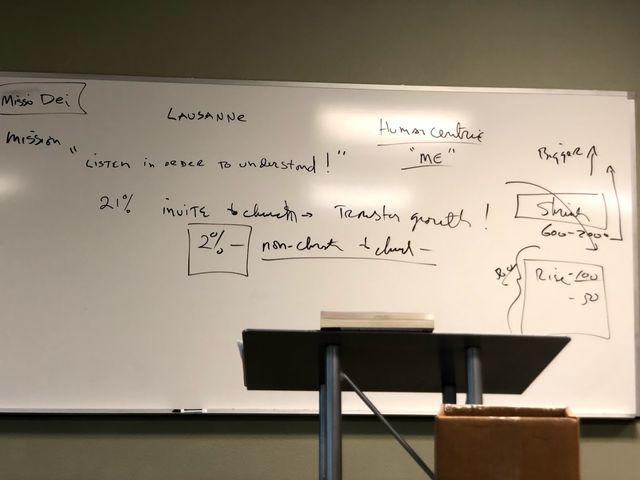 Missio Dei
LAUSANNE
mission
Humancentric
"ME"
"Listen in order to understand!"
Bigger
21% invite to church → Transfer growth!
Shrink
600-2000
2% - non-church to church -
Rise - 100
- 50